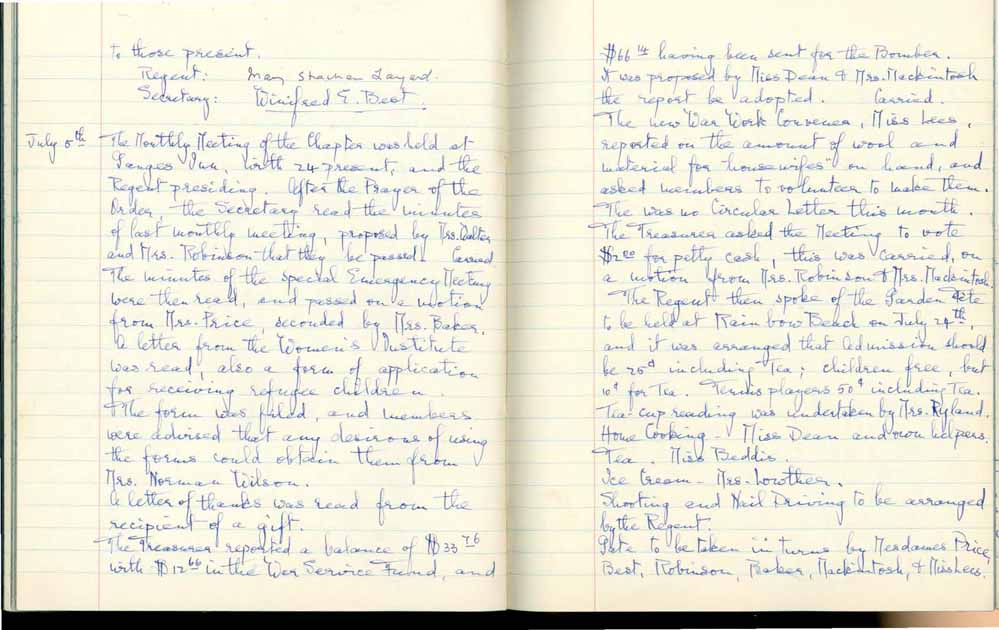 to those present.
Regent: Mary Shawhan Layard.
Secretary: Winifred E. Best.
July 5th The Monthly Meeting of the Chapter was held at
Ganges Inn, with 24 present, and the
Regent presiding. After the Prayer of the
Order, the Secretary read the minutes
of last monthly meeting, proposed by Mrs.
and Mrs. Robinson that they be passed. Carried
The minutes of the special Emergency Meeting
were then read, and passed on a motion
from Mrs. Price, seconded by Mrs. Baker.
A letter from the Women's Institute
was read, also a form of application
for receiving refugee children.
The form was filed, and members
were advised that any desirous of using
the forms could obtain them from
Mrs. Norman Wilson.
A letter of thanks was read from the
recipient of a gift.
The Treasurer reported a balance of $33 76
with $12 66 in the War Service Fund, and
$66 14 having been sent for the Bomber.
It was proposed by Miss Dean & Mrs. Mackintosh
the report be adopted. Carried.
The new War Work Convener, Miss Lees,
reported on the amount of wool and
material for "housewifes" on hand, and
asked members to volunteer to make them.
The was no Circular Letter this month.
The Treasurer asked the Meeting to vote
$2.00 for petty cash, this was carried, on
a motion from Mrs. Robinson & Mrs. Mackintosh.
The Regent then spoke of the Garden Fete
to be held at Rainbow Beach on July 24th,
and it was arranged that Admission should
be 25¢ including Tea; children free, but
10¢ for Tea. Tennis players 50¢ including Tea.
Tea cup reading was undertaken by Mrs. Ryland.
Home Cooking - Miss Dean and own helpers.
Tea. Miss Beddis.
Ice Cream - Mrs. Lowther.
Shooting and Nail Driving to be arranged
by the Regent.
Gate to be taken in turns by Mesdames Price,
Best, Robinson, Baker, Mackintosh, & Miss Lees.